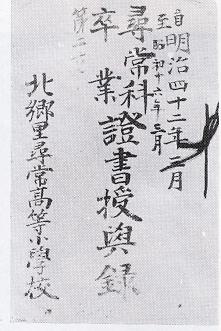 自明治四十二年三月
至昭和十六年三月
尋常科
卒業證書授與録
北郷里尋常高等小學校